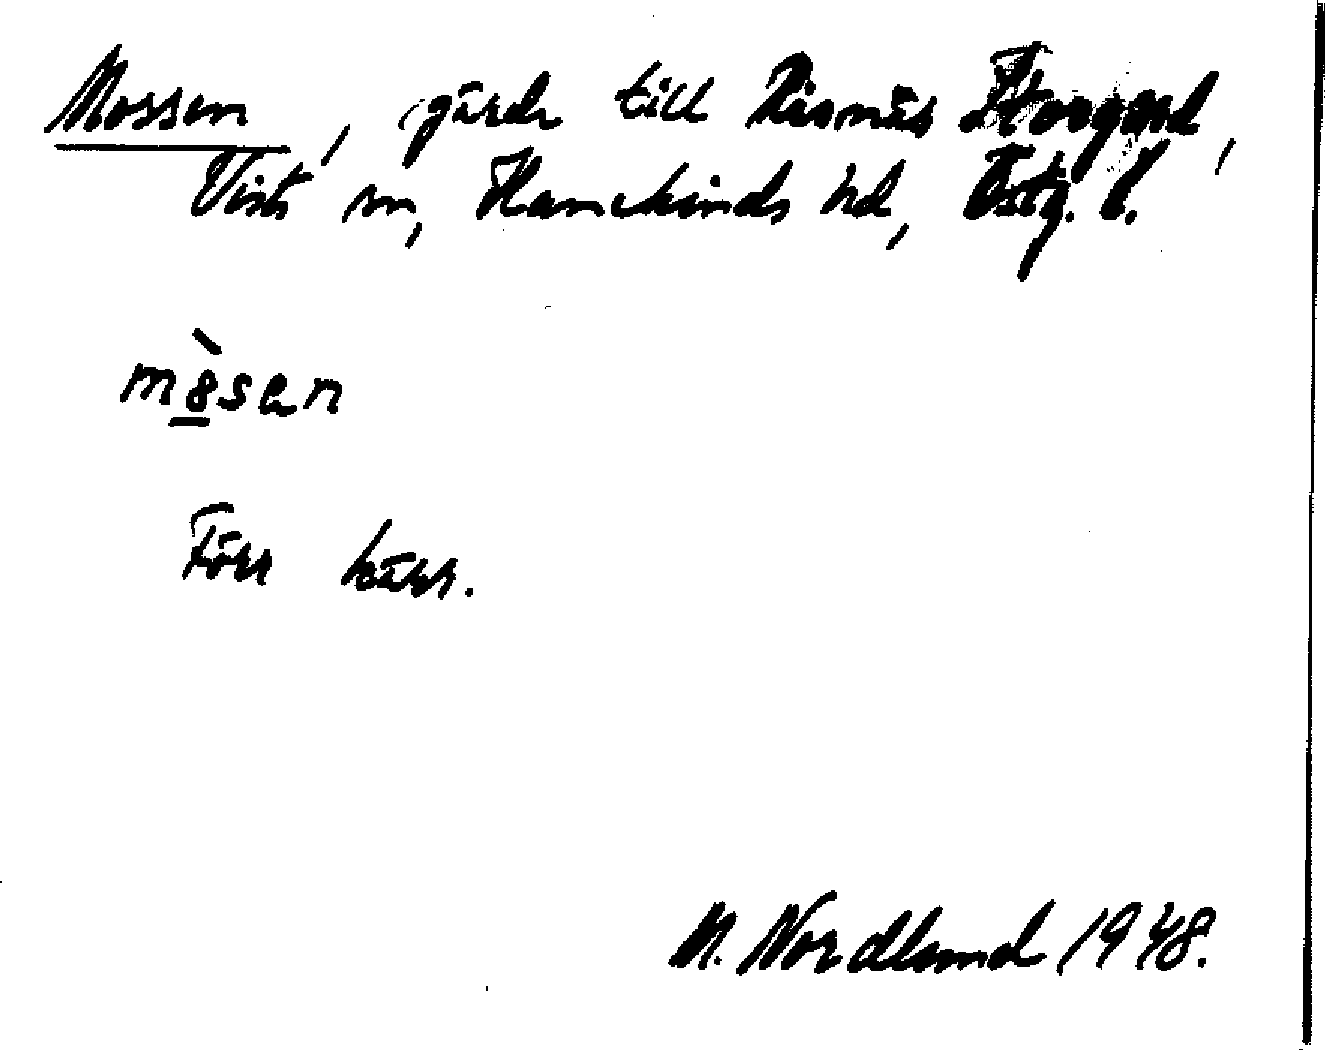 Mossen, gärde till Risnäs Storgård,
Vists sn, Hanekinds hd, Östg. l.
mòsen
Förr kärr.
M. Nordlund 1948.